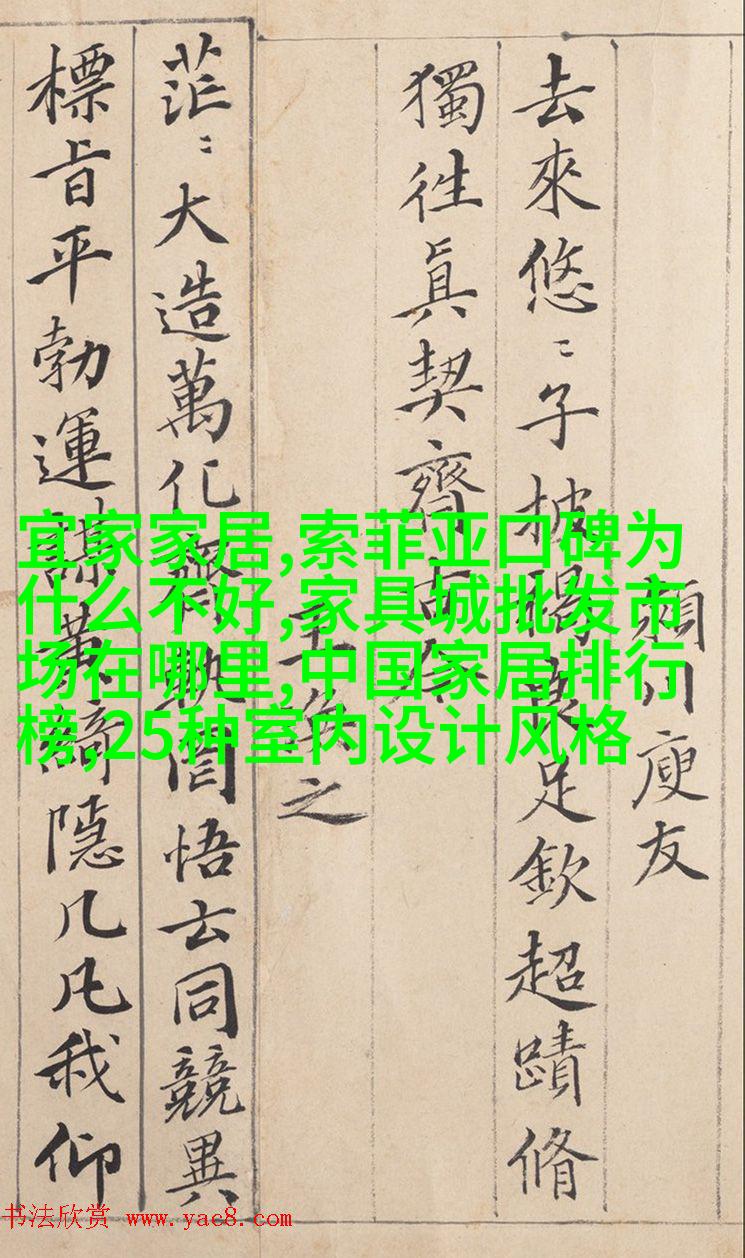 川庾友
去來悠〻子披褐良足欽超蹟脩
獨徃眞契齊古今
王渙之
茫〻大造萬化齊軌罔悟玄同競異
標旨平勃運謀黃綺隱几凡我仰
宜家家居,索菲亚口碑为
什么不好,家具城批发市
场在哪里,中国家居排行
榜,25种室内设计风格
书法欣赏 www.yac8.com